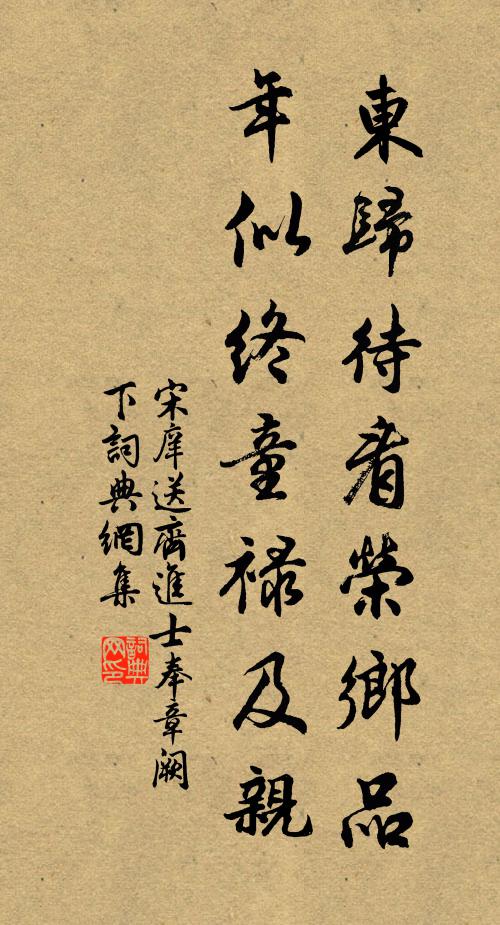 東歸待看榮鄉品
年似終童祿及親
宋庠送齊進士奉章闕
下詞典網集
詞典网印